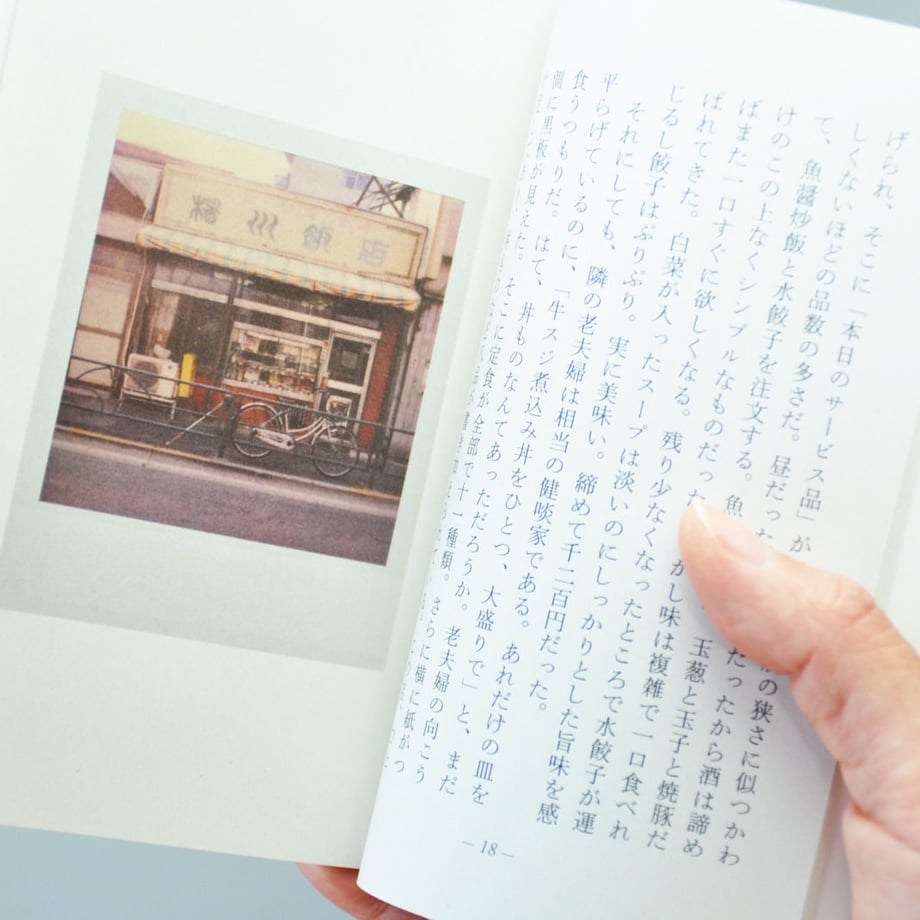 飯店
げられ、そこに「本日のサービス品」が の狭さに似つかわ
しくないほどの品数の多さだ。昼だった だったから酒は諦め
て、魚醤炒飯と水餃子を注文する。魚 玉葱と玉子と焼豚だ
けのこの上なくシンプルなものだった がし味は複雑で一口食べれ
ばまた一口すぐに欲しくなる。残り少なくなったところで水餃子が運
ばれてきた。白菜が入ったスープは淡いのにしっかりとした旨味を感
じるし餃子はぷりぷり。実に美味い。締めて千二百円だった。
それにしても、隣の老夫婦は相当の健啖家である。あれだけの皿を
平らげているのに、「牛スジ煮込み丼をひとつ、大盛りで」と、まだ
食うつもりだ。はて、丼ものなんてあっただろうか。老夫婦の向こう
側に黒板が見えた。そこに定食が全部で十一種類。さらに横に紙がつ
—18—